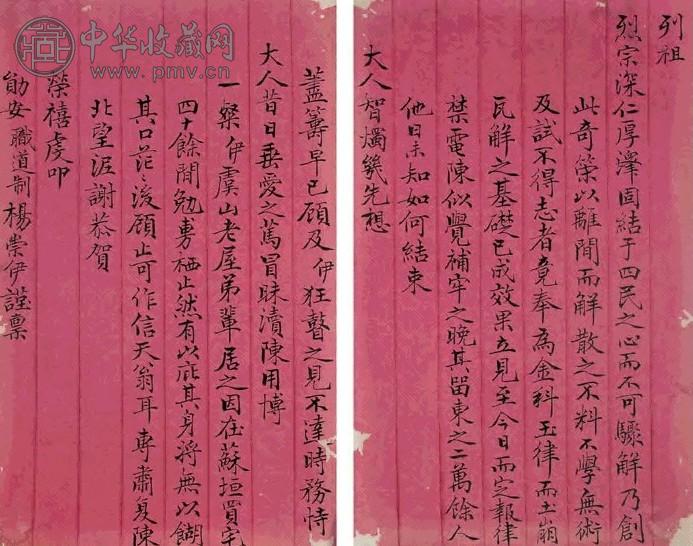 列祖
烈宗深仁厚澤固結于四民之心而不可驟解乃創
此奇策以離間而解散之不料不學無術
及試不得志者竟奉為金科玉律而土崩
瓦解之基礎已成效果立見至今日而定報律
禁電陳似覺補牢之晚其留東之二萬餘人
他日未知如何結束
大人智燭幾先想
藎籌早已顧及伊狂瞽之見不達時務恃
大人昔日垂愛之篤冒昧瀆陳用博
一粲伊虞山老屋弟輩居之因在蘇垣買宅
四十餘間勉勇栖止然有以庇其身將無以餬
其口茫茫後顧止可作信天翁耳專肅复陳
北望涯謝恭賀
榮禧虔叩
勛安職道制楊崇伊謹稟
中华收藏网
www.pmv.cn